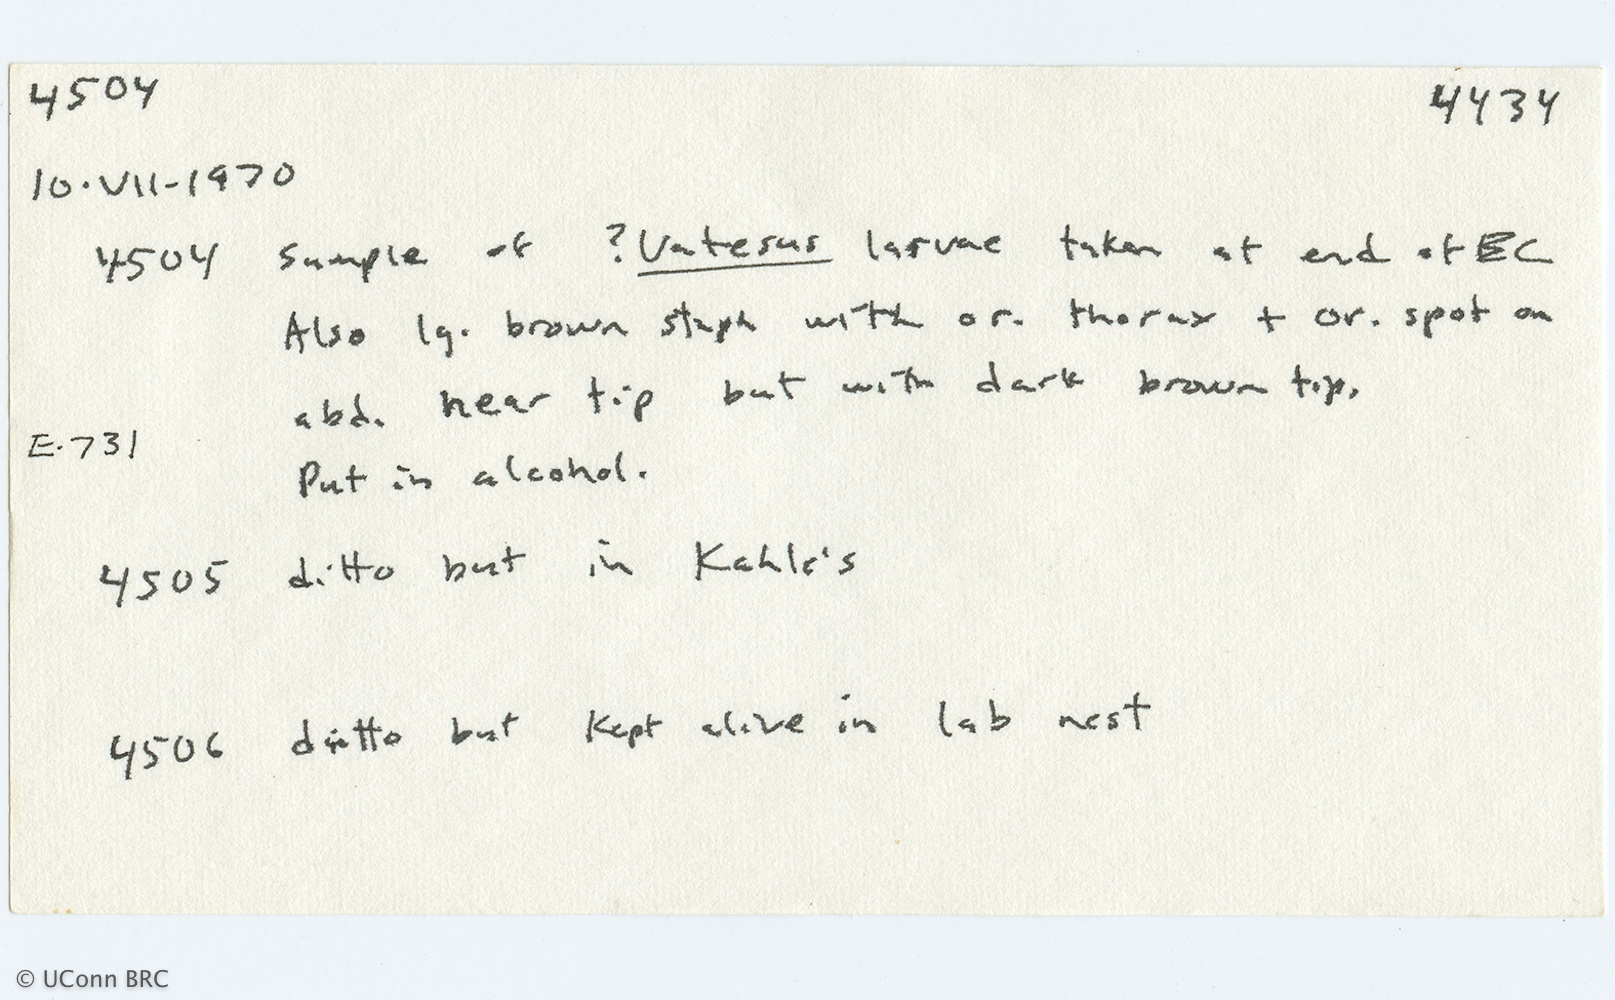 4504 4434
10·VII-1970
4504 Sample of ?Vatesus larvae taken at end of EC
Also lg. brown staph with or. thorax + or. spot on
abd. near tip but with dark brown tip.
E-731
Put in alcohol.
4505 ditto but in Kahle's
4506 ditto but kept alive in lab nest
© UConn BRC